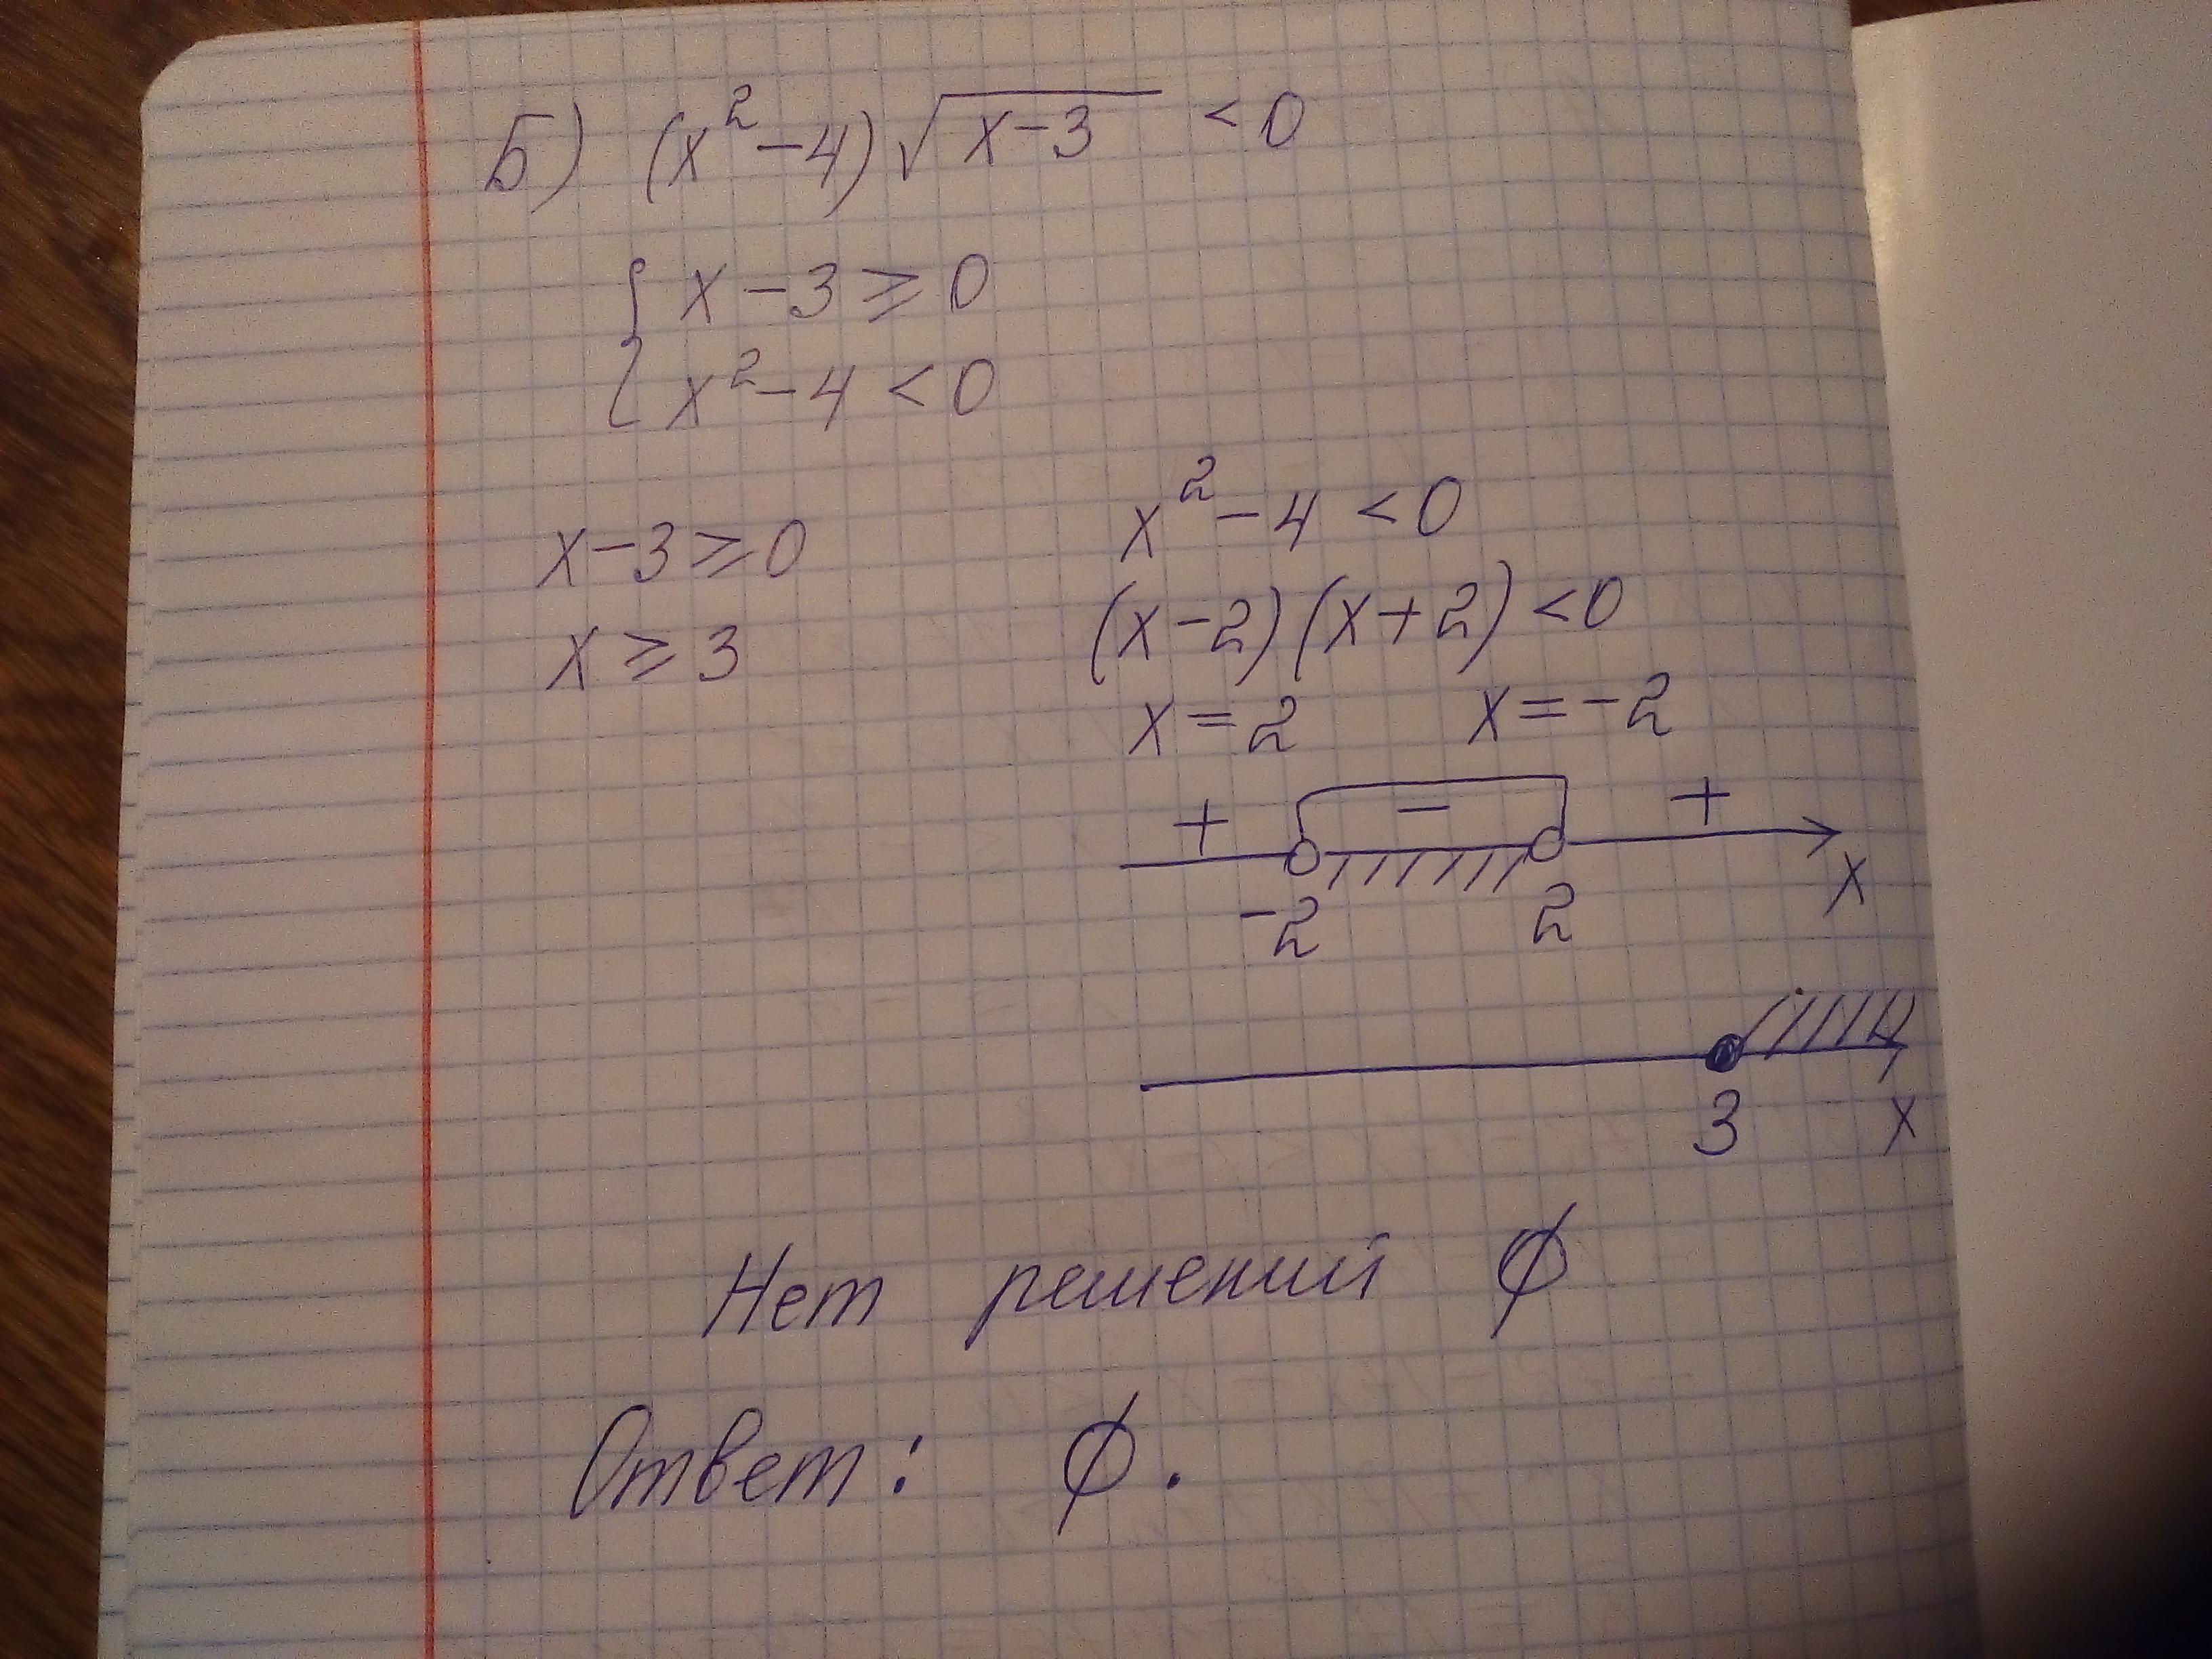 Б) (x² - 4) √(x - 3) < 0
{ x - 3 ≥ 0
{ x² - 4 < 0
x - 3 ≥ 0
x ≥ 3
x² - 4 < 0
(x - 2)(x + 2) < 0
x = 2 x = -2
+ - +
-2 2 x
3 x
Нет решений ∅
Ответ: ∅.